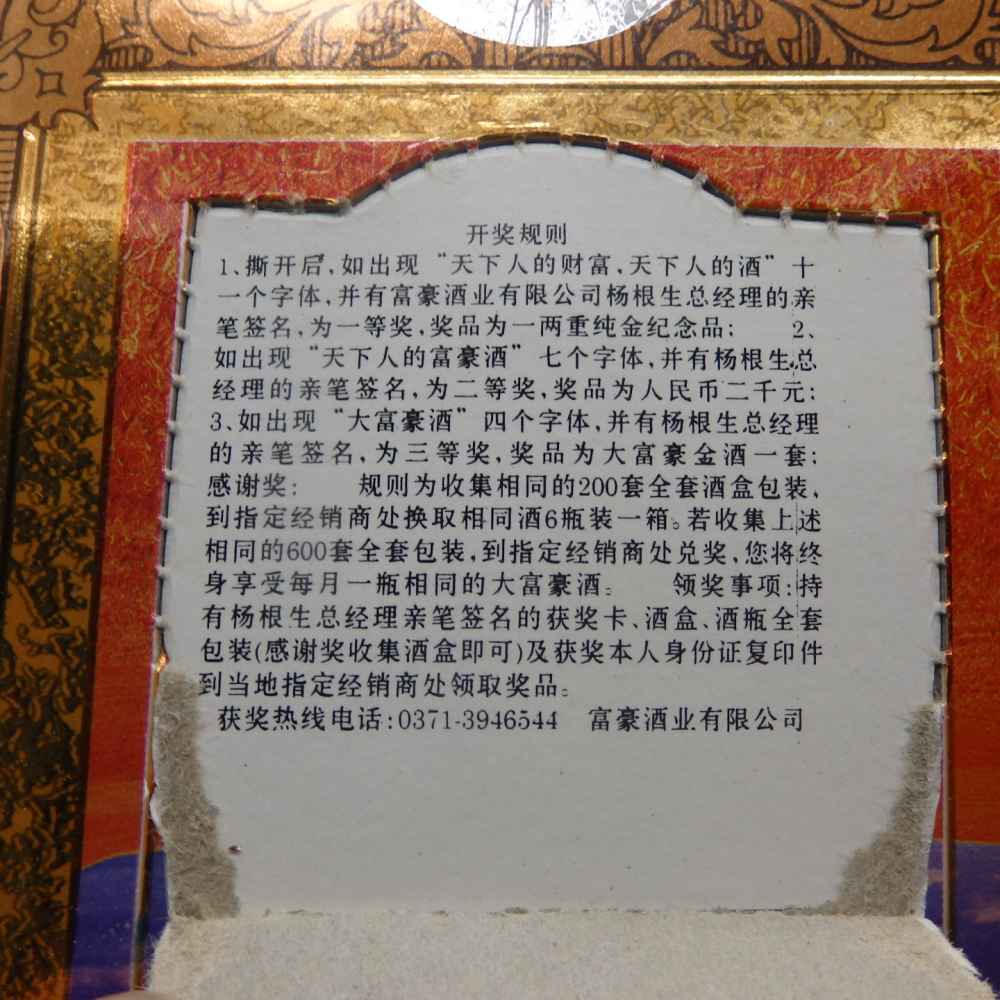 开奖规则
1、撕开后,如出现“天下人的财富,天下人的酒”十
一个字体,并有富豪酒业有限公司杨根生总经理的亲
笔签名,为一等奖,奖品为一两重纯金纪念品; 2、
如出现“天下人的富豪酒”七个字体,并有杨根生总
经理的亲笔签名,为二等奖,奖品为人民币二千元;
3、如出现“大富豪酒”四个字体,并有杨根生总经理
的亲笔签名,为三等奖,奖品为大富豪金酒一套;
感谢奖: 规则为收集相同的200套全套酒盒包装、
到指定经销商处换取相同酒6瓶装一箱。若收集上述
相同的600套全套包装,到指定经销商处兑奖,您将终
身享受每月一瓶相同的大富豪酒。 领奖事项:持
有杨根生总经理亲笔签名的获奖卡、酒盒、酒瓶全套
包装(感谢奖收集酒盒即可)及获奖本人身份证复印件
到当地指定经销商处领取奖品。
获奖热线电话:0371-3946544 富豪酒业有限公司